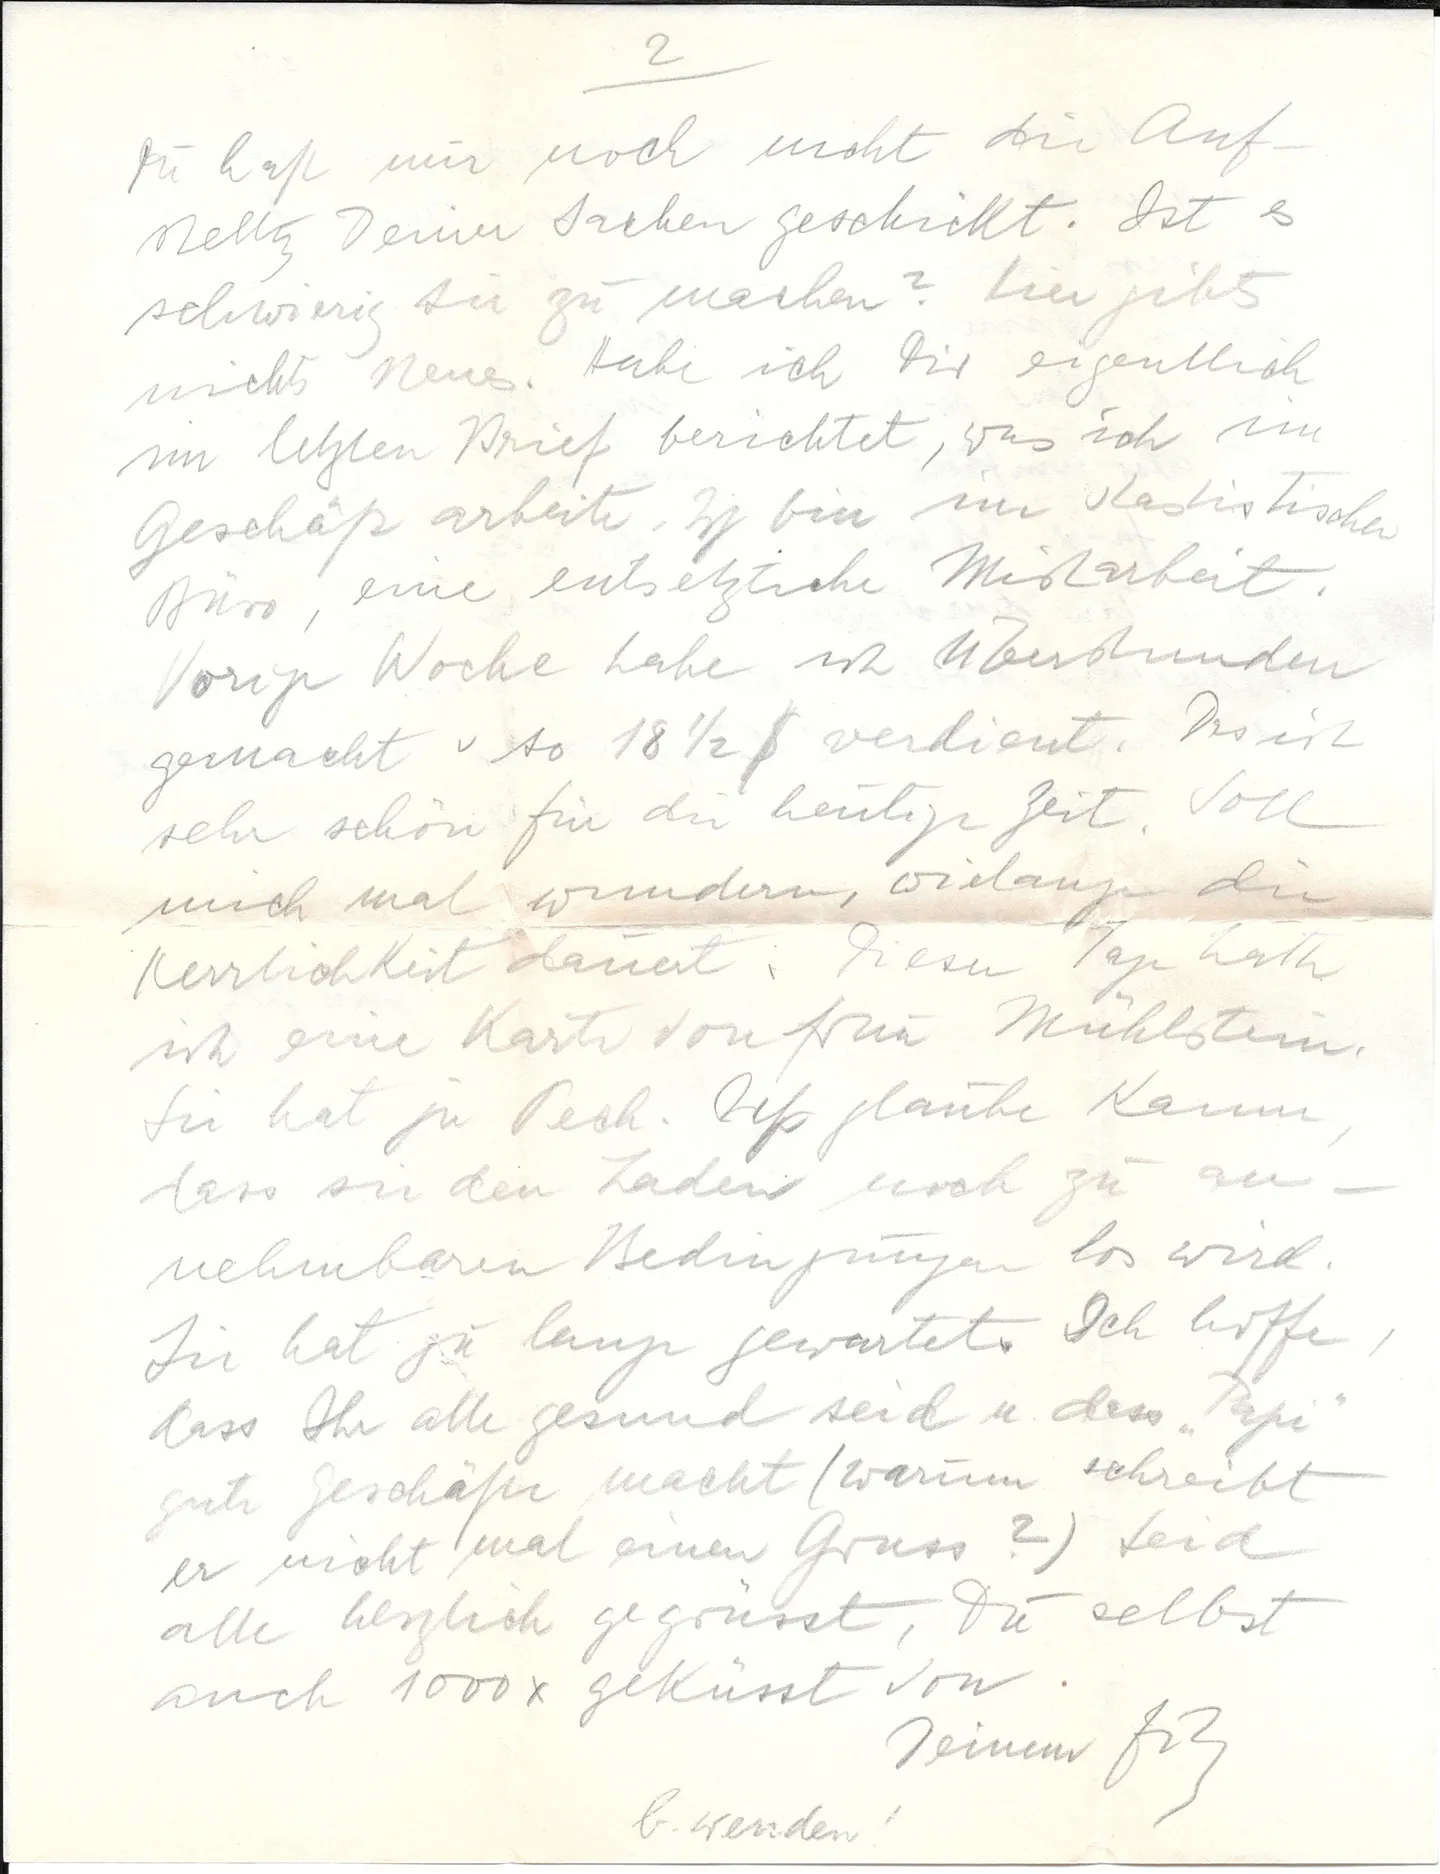 2
Du hast mir noch nicht die Auf-
stellg Deiner Sachen geschickt. Ist es
schwierig sie zu machen? Hier gibts
nichts Neues. Habe ich Dir eigentlich
im letzten Brief berichtet, was ich im
Geschäft arbeite. Ich bin im statistischen
Büro, eine entsetzliche Mistarbeit.
Vorige Woche habe ich Überstunden
gemacht u so 18 1/2 $ verdient. Das ist
sehr schön für die heutige Zeit. Soll
mich mal wundern, wielange die
Herrlichkeit dauert. Dieser Tage hatte
ich eine Karte von Frau Mühlstein.
Sie hat ja Pech. Ich glaube kaum,
dass sie den Laden noch zu an-
nehmbaren Bedingungen los wird.
Sie hat zu lange gewartet. Ich hoffe,
dass Ihr alle gesund seid u. dass „Papi“
gute Geschäfte macht (warum schreibt
er nicht mal einen Gruss?) Seid
alle herzlich gegrüsst, Du selbst
auch 1000x geküsst von
Deinem
b. wenden!